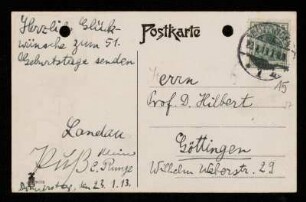 Herzliche Glück-
wünsche zum 51.
Geburtstage senden
Landau
C. Runge
Donnerstag, den 23. 1. 13.
Postkarte
Herrn
Prof. D. Hilbert
Göttingen
Wilhelm Weberstr. 29
15